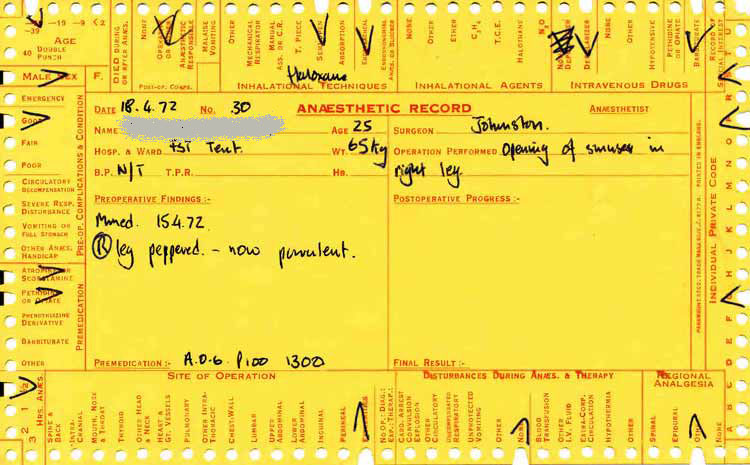 -39 -19 -9 <2
AGE
40 DOUBLE PUNCH
DIED DURING OR AFTER ANÆS.
NONE
ANÆSTHETIC RESPONSIBLE
MALAISE VOMITING
OTHER
MECHANICAL RESPIRATOR
MANUAL ASS. OR C.R.
T. PIECE
ABSORPTION
ENDOBRONCHIAL ANÆS. OR BLOCKER
NONE
OTHER
ETHER
C₃H₆
T.C.E.
HALOTHANE
N₂O
NONE
OTHER
HYPOTENSIVE
PETHIDINE OR OPIATE
BARBITURATE
Haloxane
MALE SEX F.
POST-OP. COMPS.
INHALATIONAL TECHNIQUES
INHALATIONAL AGENTS
INTRAVENOUS DRUGS
DATE 18.4.72 NO. 30 ANÆSTHETIC RECORD ANÆSTHETIST
NAME AGE 25 SURGEON Johnston.
HOSP. & WARD FST Tent. WT. 65kg OPERATION PERFORMED Opening of sinuses in
B.P. N/T T.P.R. HB. right leg.
PREOPERATIVE FINDINGS :- POSTOPERATIVE PROGRESS :-
Mined. 15.4.72
(R) leg peppered. - now purulent.
PREMEDICATION :- A.0.6. P100 1300 FINAL RESULT :-
EMERGENCY
GOOD
FAIR
POOR
CIRCULATORY DECOMPENSATION
SEVERE RESP. DISTURBANCE
VOMITING OR FULL STOMACH
OTHER ANÆS. HANDICAP
PRE-OP. COMPLICATIONS & CONDITION
ATROPINE OR SCOPOLAMINE
PETHIDINE OR OPIATE
PHENOTHIAZINE DERIVATIVE
BARBITURATE
OTHER
PREMEDICATION
PRINTED IN ENGLAND.
INDIVIDUAL PRIVATE CODE
SITE OF OPERATION
DISTURBANCES DURING ANÆS. & THERAPY
REGIONAL ANALGESIA
3 2 1 ½ HRS. ANÆS.
SPINE & BACK
INTRA-CRANIAL
MOUTH, NOSE & THROAT
THYROID
OTHER HEAD & NECK
HEART & GT. VESSELS
PULMONARY
OTHER INTRA-THORACIC
CHEST-WALL
LUMBAR
UPPER ABDOMINAL
LOWER ABDOMINAL
INGUINAL
PERINEAL
NO OP.: DIAG.: EXP.: THERAP.:
CARD. ARREST
CONVULSION
EXPLOSION
OTHER CIRCULATORY
RESPIRATORY
UNPROVOKED VOMITING
OTHER
NONE
BLOOD TRANSFUSION
OTHER I.V. FLUID
EXTRA-CORP. CIRCULATION
HYPOTHERMIA
OTHER
SPINAL
EPIDURAL